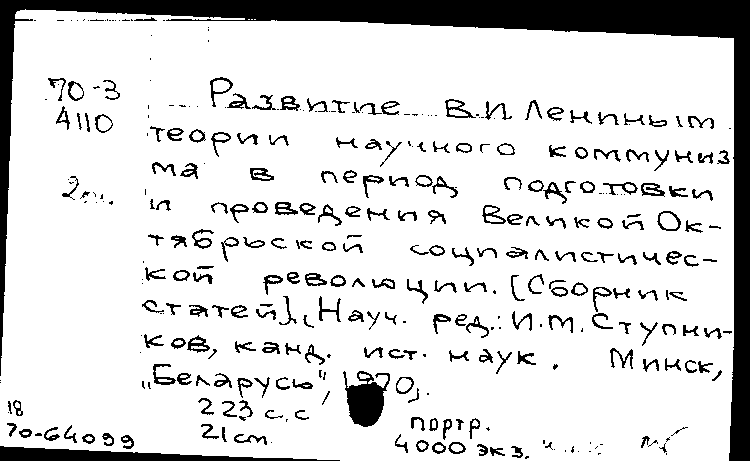 70-3
4110
2 эк.
Развитие В.И Лениным
теории научного коммуниз
ма в период подготовки
и проведения Великой Ок-
тябрьской социалистичес-
кой революции. [Сборник
статей]. [Науч. ред.: И.М. Ступни-
ков, канд. ист. наук. Минск,
„Беларусь", 1970.
223 с. с портр.
21 cm 4000 экз.
18
70-64099